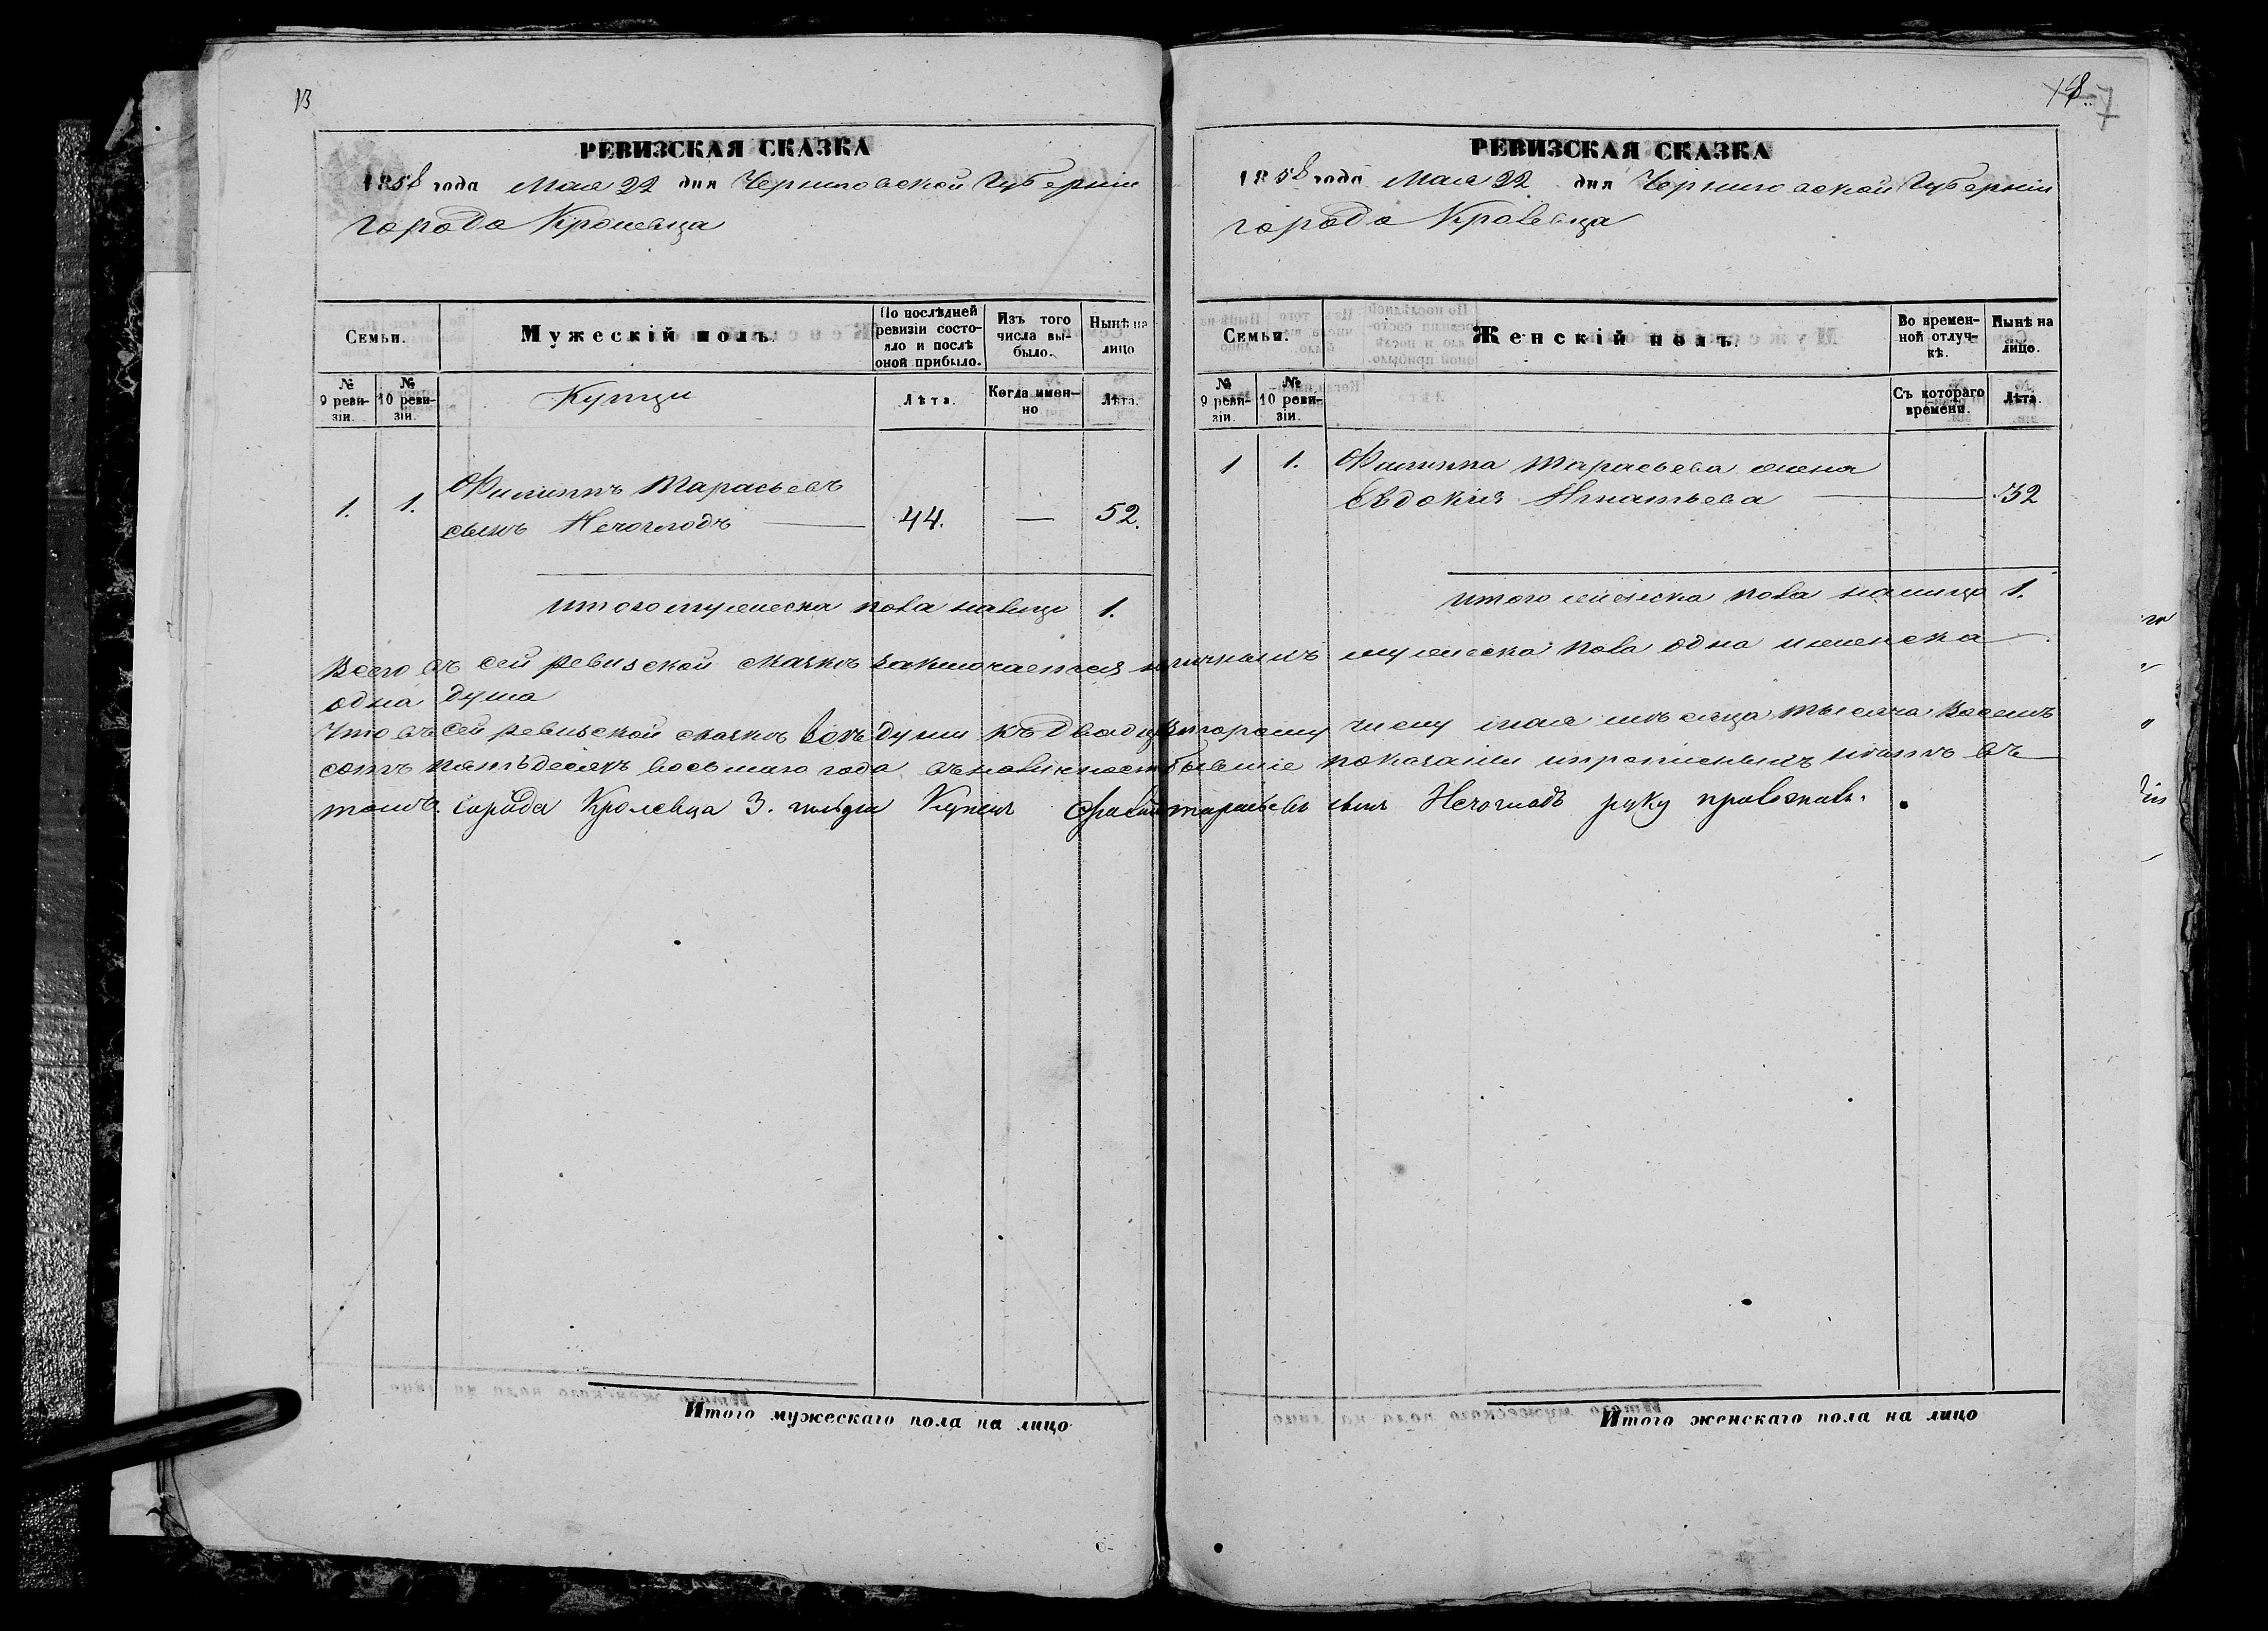 13
РЕВИЗСКАЯ СКАЗКА
1858 года Мая 22 дня Черниговской Губерніи
города Кролевца
Семьи.
Мужескій полъ.
По послѣдней ревизіи состояло и послѣ оной прибыло.
Изъ того числа выбыло.
Нынѣ на лицо
№ 9 ревизіи.
№ 10 ревизіи.
Купцы
Лѣта.
Когда именно
Лѣта.
1.
1.
Филиппъ Тарасьевъ
сынъ Нечоглодъ
44.
—
52.
итого мужеска пола налицо 1.
18.
7
РЕВИЗСКАЯ СКАЗКА
1858 года Мая 22 дня Черниговской Губерніи
города Кролевца
Семьи.
Женскій полъ.
Во временной отлучкѣ.
Нынѣ на лицо.
№ 9 ревизіи.
№ 10 ревизіи.
Съ котораго времени.
Лѣта.
1
1.
Филиппа Тарасьева жена
Евдокия Игнатьева
32
итого женска пола налицо 1.
Всего въ сей ревизской сказкѣ заключается наличныхъ мужеска пола одна и женска
одна душа
Что въ сей ревизской сказкѣ всѣ души къ Двадцать второму числу мая мѣсяца тысяча восемь
сотъ пятьдесятъ восьмаго года бывшіе показаны и прописныхъ нѣтъ въ
томъ города Кролевца 3. гильди Купецъ Тарасьевъ сынъ Нечоглодъ руку приложилъ.
Итого мужескаго пола на лицо
Итого женскаго пола на лицо